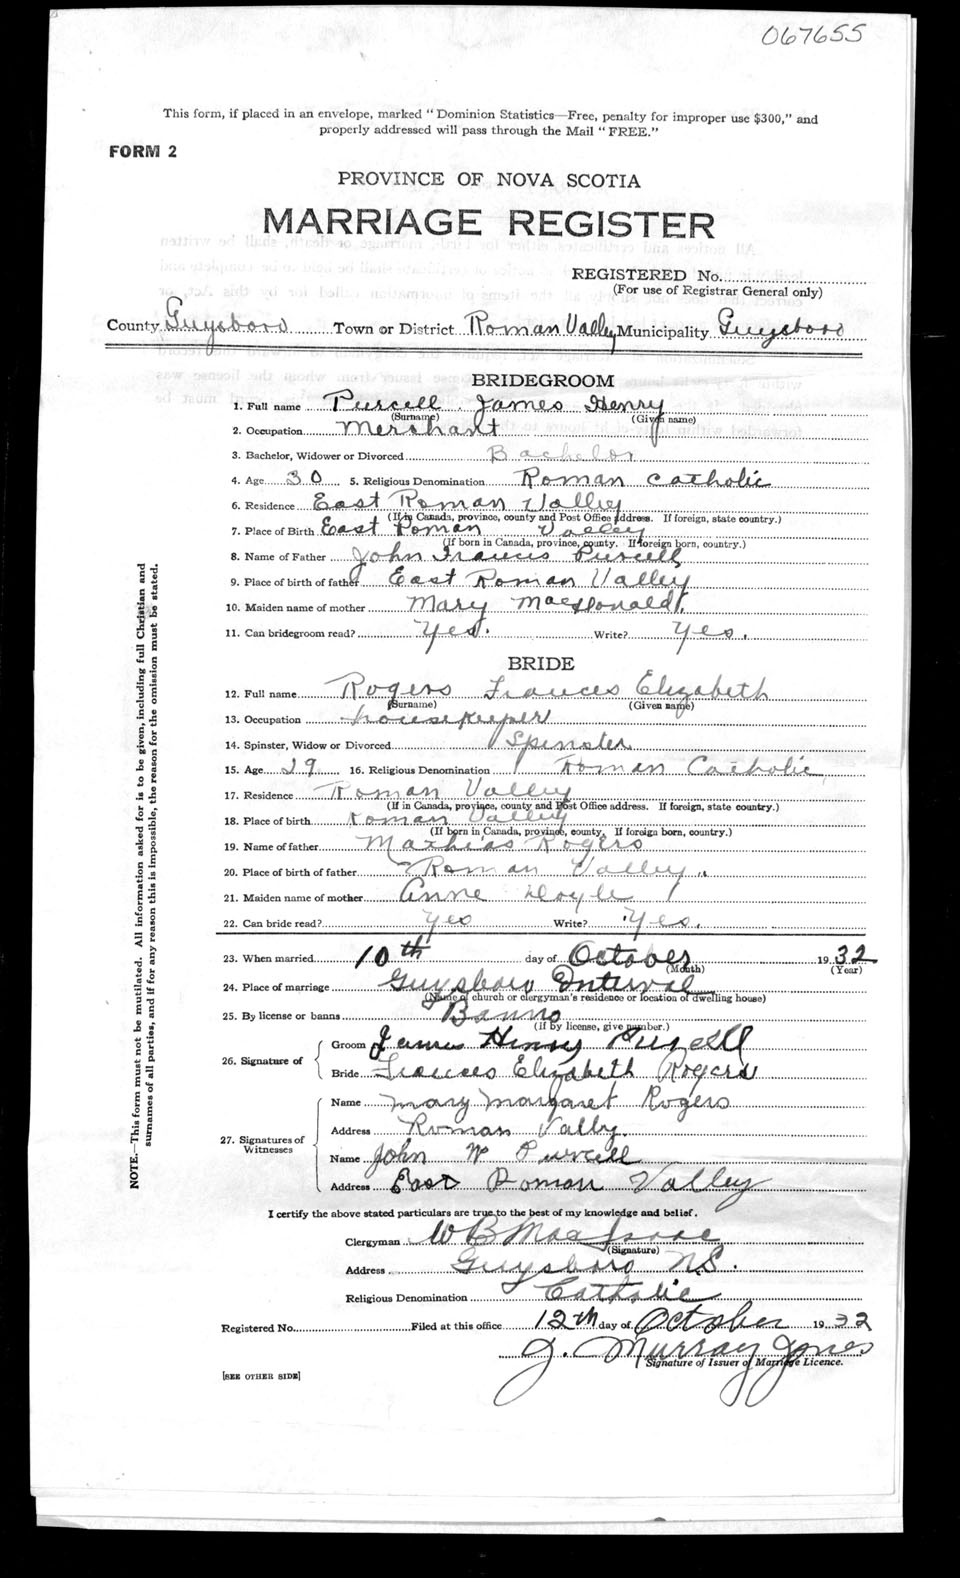 067655
This form, if placed in an envelope, marked "Dominion Statistics—Free, penalty for improper use $300," and
properly addressed will pass through the Mail "FREE."
FORM 2
PROVINCE OF NOVA SCOTIA
MARRIAGE REGISTER
REGISTERED No.
(For use of Registrar General only)
County Guysboro Town or District Roman Valley Municipality Guysboro
BRIDEGROOM
1. Full name Purcell James Henry
(Surname) (Given name)
2. Occupation Merchant
3. Bachelor, Widower or Divorced Bachelor
4. Age 30 5. Religious Denomination Roman Catholic
6. Residence East Roman Valley
(If in Canada, province, county and Post Office address. If foreign, state country.)
7. Place of Birth East Roman Valley
(If born in Canada, province, county. If foreign born, country.)
8. Name of Father John Francis Purcell
9. Place of birth of father East Roman Valley
10. Maiden name of mother Mary MacDonald.
11. Can bridegroom read? Yes. Write? Yes.
BRIDE
12. Full name Rogers Frances Elizabeth
(Surname) (Given name)
13. Occupation housekeeper
14. Spinster, Widow or Divorced Spinster
15. Age 29 16. Religious Denomination Roman Catholic
17. Residence Roman Valley
(If in Canada, province, county and Post Office address. If foreign, state country.)
18. Place of birth Roman Valley
(If born in Canada, province, county. If foreign born, country.)
19. Name of father Mathias Rogers
20. Place of birth of father Roman Valley.
21. Maiden name of mother Anne Doyle
22. Can bride read? Yes Write? Yes.
23. When married 10th day of October 1932
(Month) (Year)
24. Place of marriage Guysboro Interval
(Name of church or clergyman's residence or location of dwelling house)
25. By license or banns Banns
(If by license, give number.)
26. Signature of
Groom James Henry Purcell
Bride Frances Elizabeth Rogers
27. Signatures of
Witnesses
Name Mary Margaret Rogers
Address Roman Valley.
Name John W Purcell
Address East Roman Valley
I certify the above stated particulars are true to the best of my knowledge and belief.
Clergyman W B MacIsaac
(Signature)
Address Guysboro N.S.
Religious Denomination Catholic
Registered No. Filed at this office 12th day of October 1932
J. Murray Jones
Signature of Issuer of Marriage Licence.
[SEE OTHER SIDE]
NOTE.—This form must not be mutilated. All information asked for is to be given, including full Christian and
surnames of all parties, and if for any reason this is impossible, the reason for the omission must be stated.